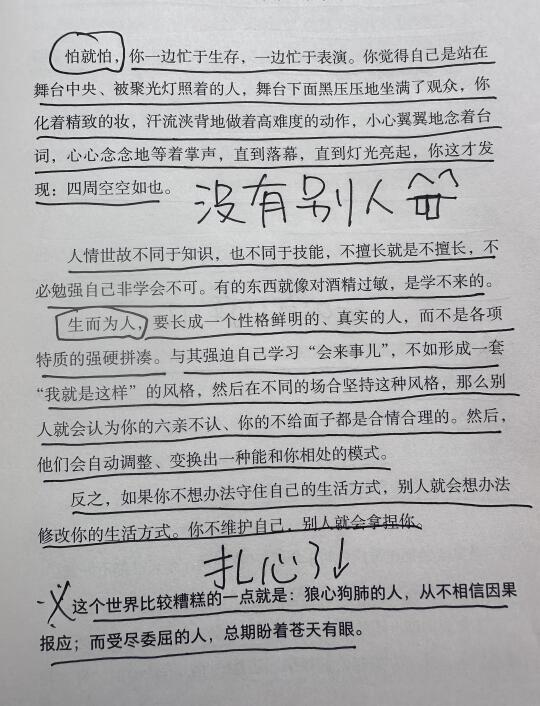 怕就怕，你一边忙于生存，一边忙于表演。你觉得自己是站在
舞台中央、被聚光灯照着的人，舞台下面黑压压地坐满了观众，你
化着精致的妆，汗流浃背地做着高难度的动作，小心翼翼地念着台
词，心心念念地等着掌声，直到落幕，直到灯光亮起，你这才发
现：四周空空如也。
没有别人
人情世故不同于知识，也不同于技能，不擅长就是不擅长，不
必勉强自己非学会不可。有的东西就像对酒精过敏，是学不来的。
生而为人，要长成一个性格鲜明的、真实的人，而不是各项
特质的强硬拼凑。与其强迫自己学习“会来事儿”，不如形成一套
“我就是这样”的风格，然后在不同的场合坚持这种风格，那么别
人就会认为你的六亲不认、你的不给面子都是合情合理的。然后，
他们会自动调整、变换出一种能和你相处的模式。
反之，如果你不想办法守住自己的生活方式，别人就会想办法
修改你的生活方式。你不维护自己，别人就会拿捏你。
扎心了↓
这个世界比较糟糕的一点就是：狼心狗肺的人，从不相信因果
报应；而受尽委屈的人，总期盼着苍天有眼。